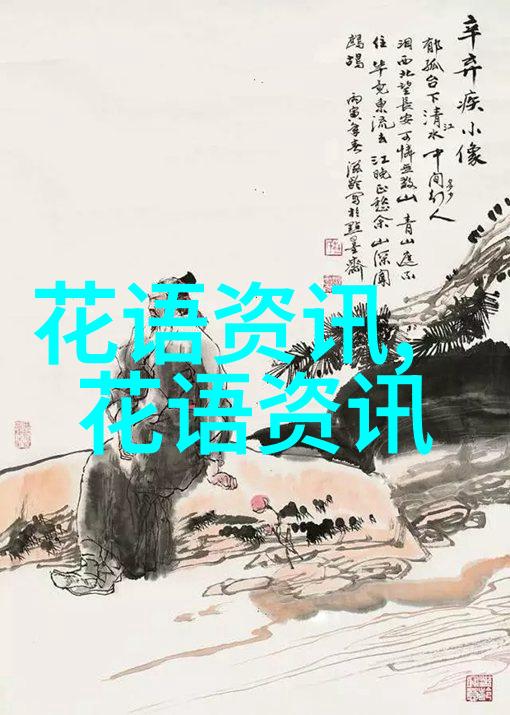 辛弃疾小像
郁孤台下清江水中间多少行人
泪西北望長安可憐无数山青山遮不
住毕竟東流去江晚正愁余山深闻
鹧鸪 丙寅年春 写於點墨齋
花语资讯,
花语资讯